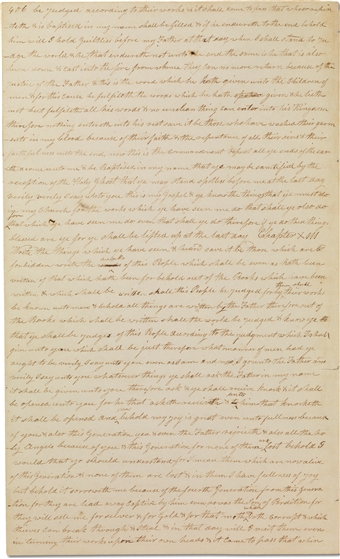 406 be judged according to their works & it shall come to pass that whoso repen
teth & is baptised in my name shall be filled & if he endureth to the end behold
him will I hold guiltless before my Father at that day when I shall stand to ju
dge the world & he that endureth not unto the end the same is he that is also
hewn down & cast into the fire from whence they can no more return because of the
justice of the Father & this is the word which he hath given unto the children of
men & for this cause he fulfilleth the words which he hath given & he lieth
not but fulfilleth all his words & no unclean thing can enter into his kingdom
therefore nothing entereth into his rest save it be those who have washed their garm
ents in my blood because of their faith & the repentance of all their sins & their
faithfulness unto the end now this is the commandment repent all ye ends of the ear
th & come unto me & be baptised in my name that ye may be sanctified by the
reception of the Holy Ghost that ye may stand spotless before me at the last day
verily verily I say unto you this is my gospel & ye know the things that ye must do
in my Church for the works which ye have seen me do that shall ye also do
for that which ye have seen me do even that shall ye do therefore if ye do these things
blessed are ye for ye shall be lifted up at the last day Chapter
Write the things which ye have seen & heard save it be those which are
forbidden write the works of this People which shall be even as hath been
written of that which hath been for behold out of the Books which have been
written & which shall be written shall this People be judged for by them shall their works
be known unto men & behold all things are written by the Father therefore out of
the Books which shall be written shall the world be judged & know ye
that ye shall be judges of this People according to the judgment which I shall
give unto you which shall be just therefore what manner of men had ye
ought to be verily I say unto you even as I am & now I go unto the Father &
verily I say unto you whatsoever things ye shall ask the Father in my name
it shall be given unto you therefore ask & ye shall receive knock & it shall
be opened unto you for he that asketh receiveth & unto him that knocketh
it shall be opened & now behold my joy is great even unto fullness because
of you & also this Generation yea & even the Father rejoiceth & also all the ho
ly Angels because of you & this Generation for none of them are lost behold I
would that ye should understand for I mean them which are now alive
of this generation & none of them are lost & in them I have fullness of joy
but behold it sorroweth me because of the fourth Generation from this genera
tion for they are lead away captive by him even as was the Son of Perdition for
they will sell me for silver & for gold & for that which moth doth corrupt & which
thieves can break through & steal & in that day will I visit them even
in turning their works upon their own heads & it came to pass that when